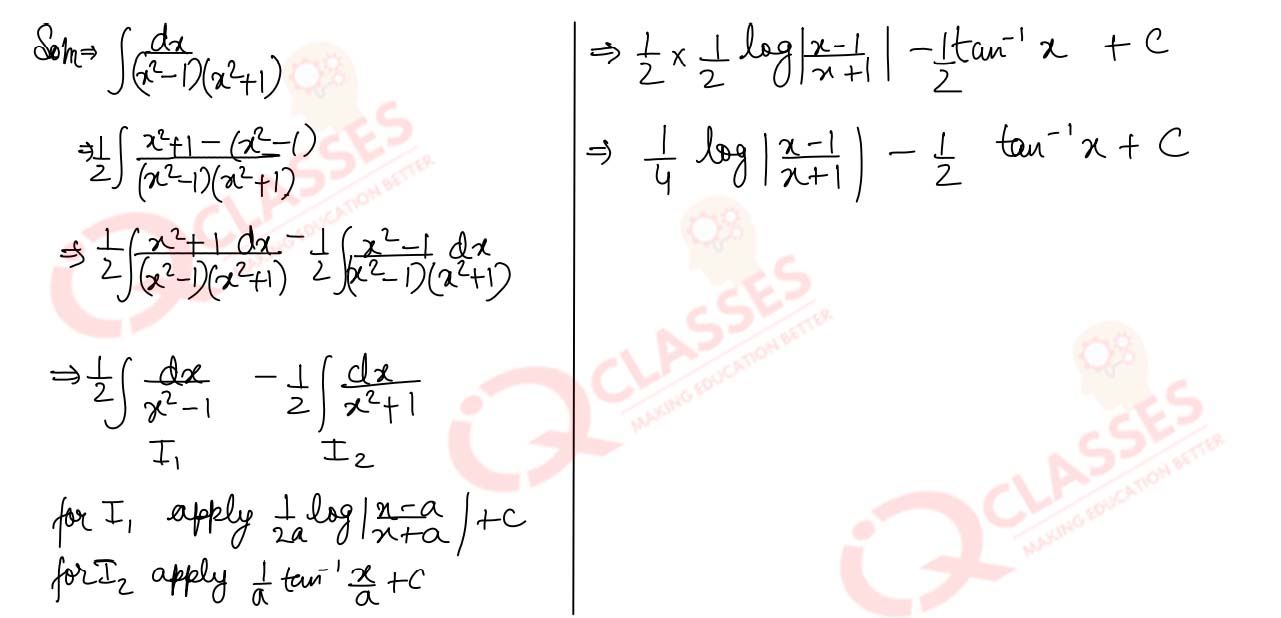 Soln ⇒ ∫ dx / (x²-1)(x²+1)
⇒ 1/2 ∫ x²+1-(x²-1) / (x²-1)(x²+1)
⇒ 1/2 ∫ x²+1 dx / (x²-1)(x²+1) - 1/2 ∫ x²-1 / (x²-1)(x²+1) dx
⇒ 1/2 ∫ dx / x²-1 - 1/2 ∫ dx / x²+1
I₁ I₂
for I₁ apply 1/2a log|x-a / x+a| + C
for I₂ apply 1/a tan⁻¹ x/a + C
⇒ 1/2 × 1/2 log|x-1 / x+1| - 1/2 tan⁻¹ x + C
⇒ 1/4 log|x-1 / x+1| - 1/2 tan⁻¹ x + C
iQ CLASSES
MAKING EDUCATION BETTER
iQ CLASSES
MAKING EDUCATION BETTER
iQ CLASSES
MAKING EDUCATION BETTER